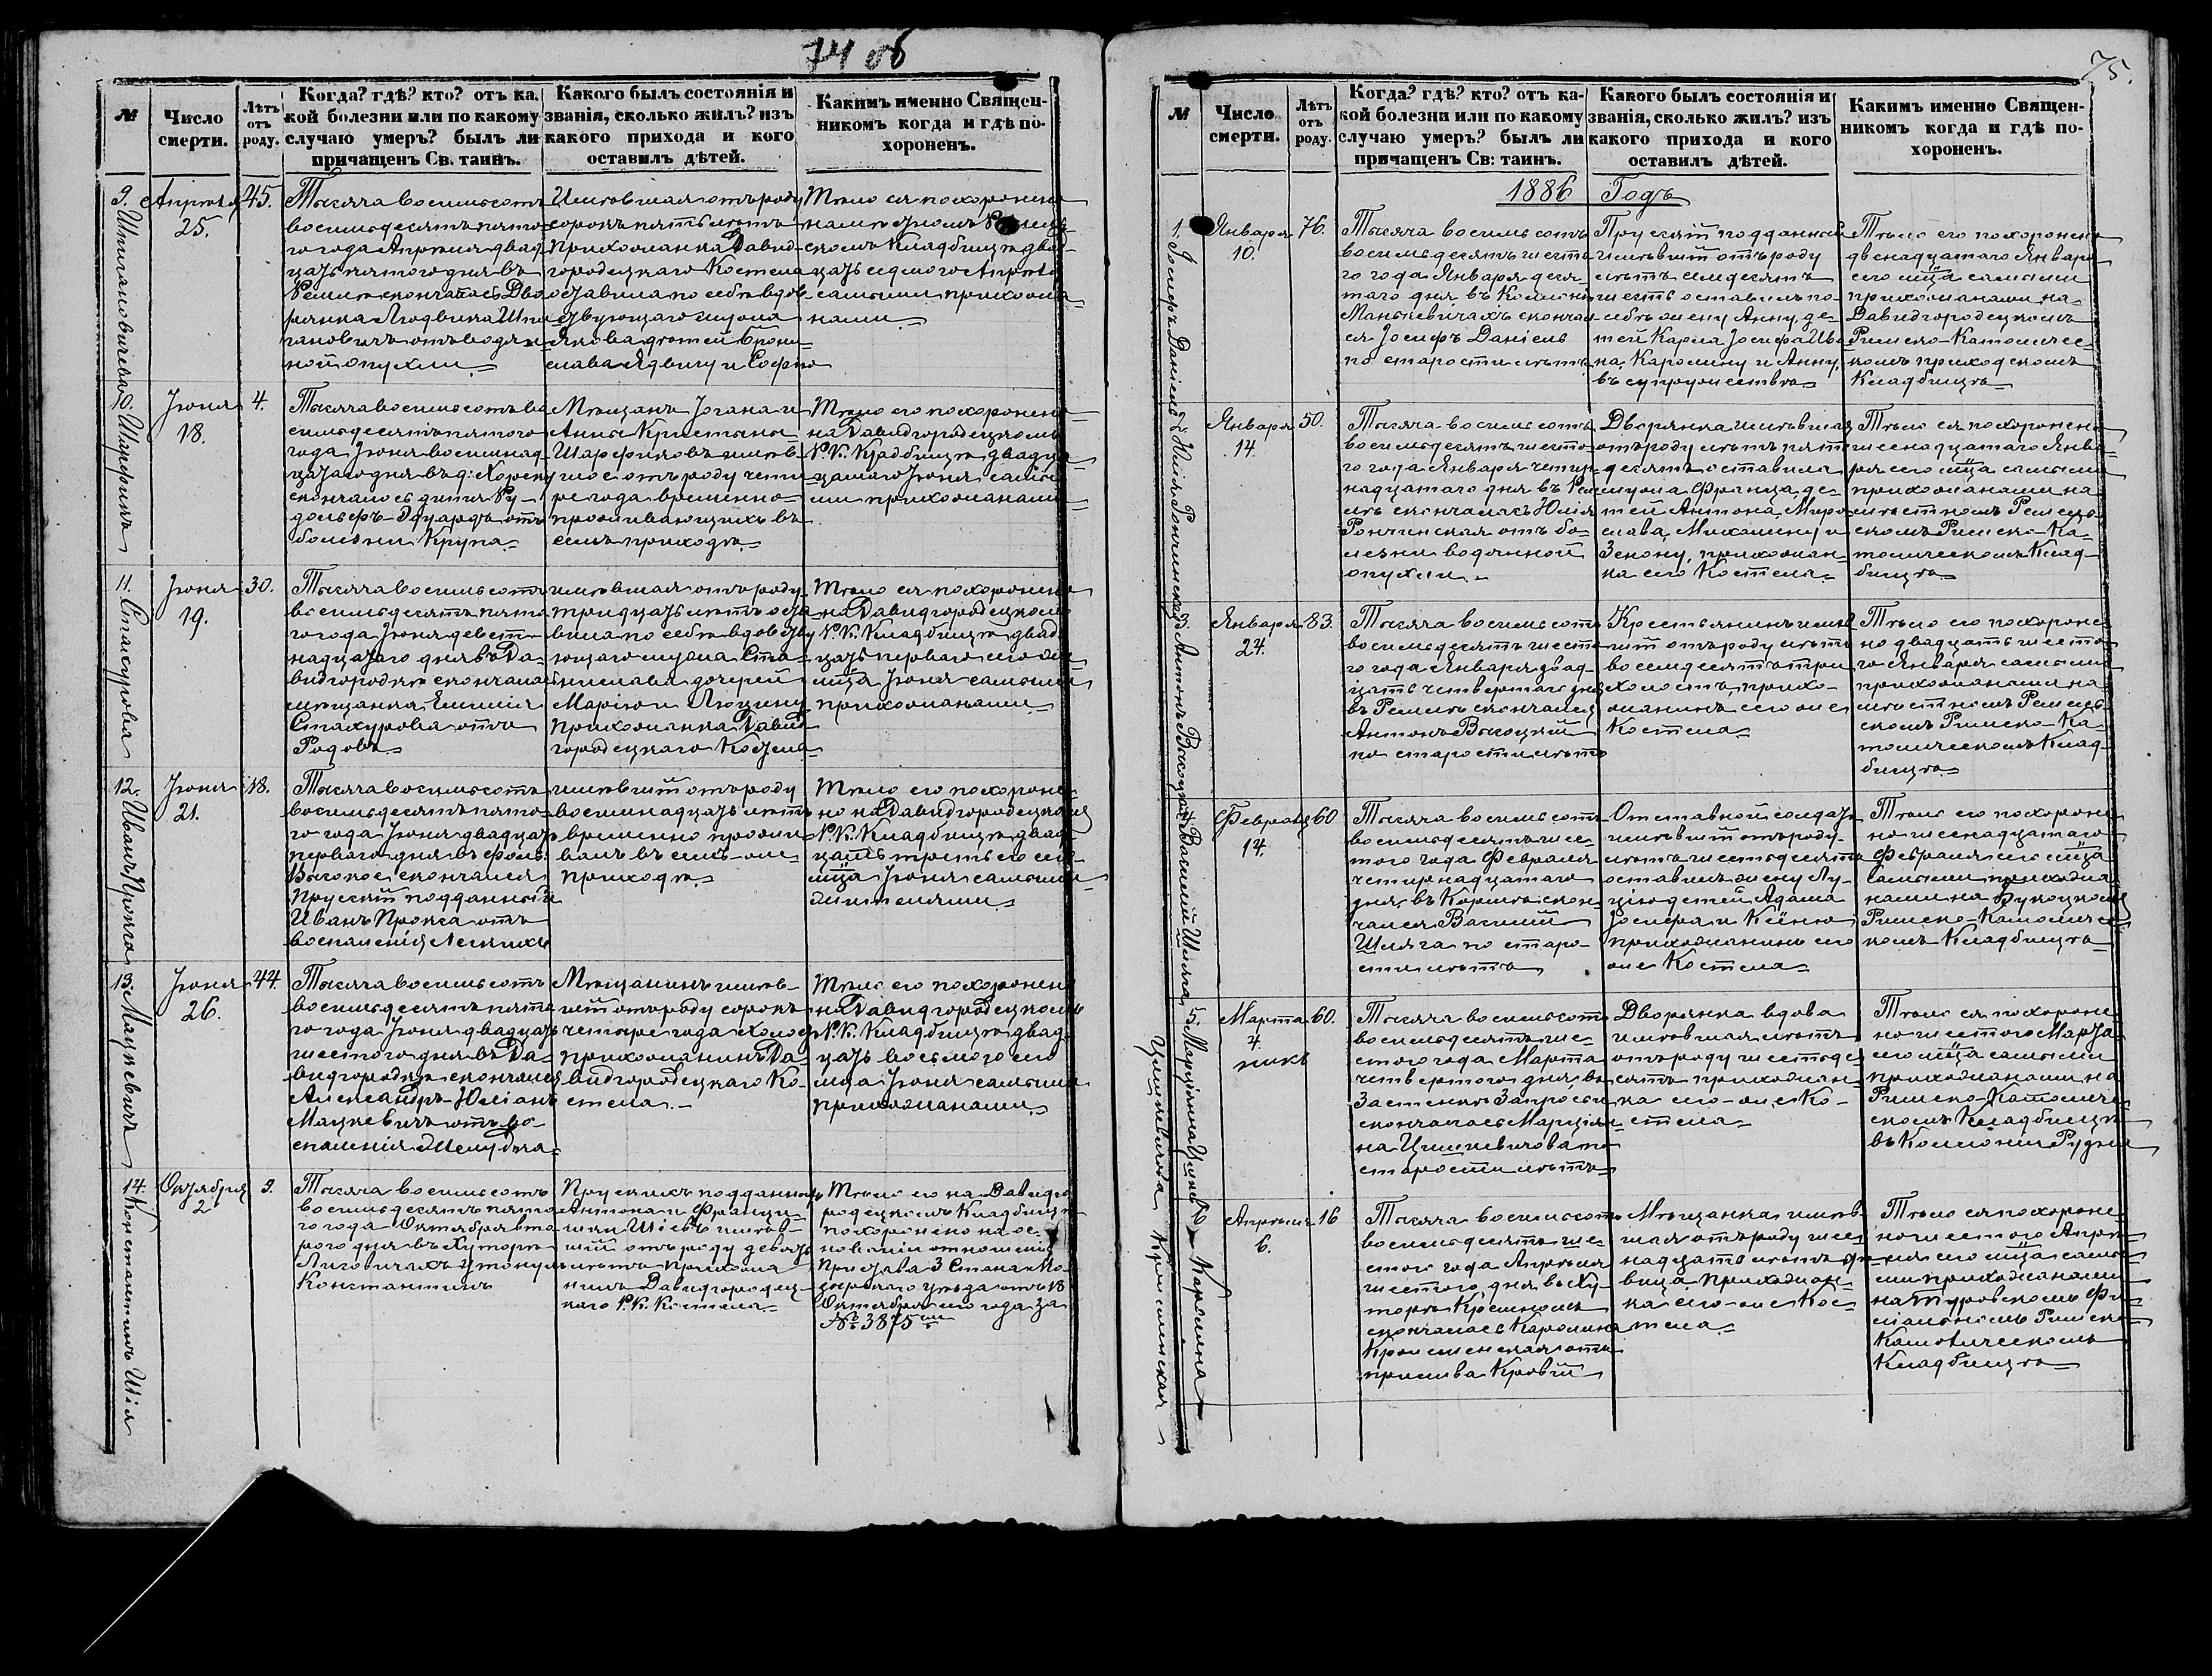 74 об
№
Число
смерти.
Лѣтъ
отъ
роду.
Когда? гдѣ? кто? отъ ка-
кой болезни или по какому
случаю умеръ? былъ ли
причащенъ Св. таинъ.
Какого былъ состоянія и
званія, сколько жилъ? изъ
какого прихода и кого
оставилъ дѣтей.
Какимъ именно Священ-
никомъ когда и гдѣ по-
хороненъ.
9.
Апрѣля
25.
45.
Тысяча восемьсотъ
восемьдесятъ пято-
го года Апрѣля двад-
цать пятого дня въ
Ремлѣ скончалась Дво
рянка Людвика
отъ водян
ной опухли
Имѣвшая отъ роду
сорокъ пять лѣтъ
прихожанка Давид-
городецкаго Костела
оставила по себѣ вдов-
ствующаго мужа
Якова дѣтей Брони-
слава Ядвигу и Софію
Тѣло ея похоронено
на мѣстномъ
скомъ Кладбищѣ двад-
цать седмого Апрѣля
самыми прихожа-
нами
10. Шарфикъ
Іюня
18.
4.
Тысяча восемьсотъ во
семьдесятъ пятого
года Іюня восемнад-
цатаго дня въ д: Хорскъ
скончалось дитя Ру-
дольфъ-Эдуардъ отъ
болезни Крупа
Мѣщанъ Іогана и
Анны Кристыны
Шарфиковъ имѣв-
шое отъ роду четы
ре года временно
проживающихъ въ
семъ приходѣ
Тѣло его похоронено
на Давидгородецкомъ
Р.К. Кладбищѣ двадца
цатаго Іюня самы
ми прихожанами
11. Стахурова
Іюня
19.
30.
Тысяча восемьсотъ
восемьдесятъ пято
го года Іюня девят-
надцатаго дня въ Да-
видгородкѣ скончалась
мѣщанка Емилія
Стахурова отъ
Родовъ
имѣвшая отъ роду
тридцать лѣтъ оста
вила по себѣ вдовству
ющаго мужа Ста-
нислава дочерей
Марію и Люцину
прихожанка Давид
городецкаго Костела
Тѣло ея похоронено
на Давидгородецкомъ
Р.К. Кладбищѣ двад
цать перваго сего же
мца Іюня самыми
прихожанами
12. Иванъ Прокса
Іюня
21.
18.
Тысяча восемьсотъ
восемьдесятъ пято-
го года Іюня двадцать
перваго дня въ фоль:
Высокое скончался
Прусскій подданный
Иванъ Прокса отъ
воспаленія Легкихъ
имѣвшій отъ роду
восемнадцать лѣтъ
временно прожи
валъ въ семъ-же
приходѣ
Тѣло его похороне-
но на Давидгородецкомъ
Р.К. Кладбищѣ двад
цать третьего сего
мца Іюня самыми
жителями
13. Мацкевичъ
Іюня
26.
44.
Тысяча восемьсотъ
восемьдесятъ пято
го года Іюня двадцать
шестого дня въ Да-
видгородкѣ скончался
Александръ-Юліанъ
Мацкевичъ отъ во-
спаленія Желудка
Мѣщанинъ имѣв-
шій отъ роду сорокъ
четыре года холостъ
прихожанинъ Да-
видгородецкаго Ко-
стела
Тѣло его похоронено
на Давидгородецкомъ
Р.К. Кладбищѣ двад
цать восьмого сего
мца Іюня самыми
прихожанами
14. Константинъ Шія
Октября
2
9.
Тысяча восемьсотъ
восемьдесятъ пято
го года Октября вто
рого дня въ Хуторѣ
утонулъ
Константинъ
Прускихъ подданныхъ
Антона и Францис-
шки Шіевъ имѣв-
шій отъ роду девять
лѣтъ прихожа-
нинъ Давидгородец-
каго Р.К. Костела
Тѣло его на Давидго
родецкомъ Кладбищѣ
похоронено на ос-
нованіи отношенія
Пристава 3 Стана Мо-
зырскаго уѣзда отъ 18
Октября сего года за
№ 3875
75.
№
Число
смерти.
Лѣтъ
отъ
роду.
Когда? гдѣ? кто? отъ ка-
кой болезни или по какому
случаю умеръ? былъ ли
причащенъ Св: таинъ.
Какого былъ состоянія и
званія, сколько жилъ? изъ
какого прихода и кого
оставилъ дѣтей.
Какимъ именно Священ-
никомъ когда и гдѣ по-
хороненъ.
1886 Годъ
1. Іосифъ Даніель
Января
10.
76.
Тысяча восемьсотъ
восемьдесятъ шесто
го года Января деся-
таго дня въ Колоніи
Манькевичахъ скончал
ся Іосифъ Даніель
по старости лѣтъ
Прускій подданный
имѣвшій отъ роду
лѣтъ семдесятъ
шесть оставилъ по
себѣ жену Анну, дѣ-
тей Карла Іосифа Ива
на, Каролину и Анну,
въ супружествѣ
Тѣло его похоронено
двенадцатаго Января
сего мца самыми
прихожанами на
Давидгородецкомъ
Римско-Католичес-
комъ приходскомъ
Кладбищѣ
2. Юлія Рончинская
Января
14.
50.
Тысяча восемьсотъ
восемьдесятъ шесто-
го года Января четыр-
надцатаго дня въ Рем
лѣ скончалась Юлія
Рончинская отъ бо-
лезни водянной
опухли
Дворянка имѣвшая
отъ роду лѣтъ пять
десятъ оставила
мужа Франца, дѣ-
тей Антона, Миро
слава, Михалину и
Зенону, прихожан-
ка сего Костела
Тѣло ея похоронено
шеснадцатаго Янва-
ря сего мца самыми
прихожанами на
мѣстномъ Ремлев-
скомъ Римско-Ка-
толическомъ Клад-
бищѣ
3. Антонъ Высоцкій
Января
24.
83.
Тысяча восемьсотъ
восемьдесятъ шесто
го года Января двад-
цать четвертаго дня
въ Ремлѣ скончался
Антонъ Высоцкій
по старости лѣтъ
Крестьянинъ имѣв
шій отъ роду лѣтъ
восемдесятъ три
холостъ, прихо-
жанинъ сего же
Костела
Тѣло его похороне-
но двадцать шесто-
го Января самыми
прихожанами на
мѣстномъ Ремлев-
скомъ Римско-Ка-
толическомъ Клад-
бищѣ
4. Василій Шляга
Февраля
14.
60
Тысяча восемьсотъ
восемьдесятъ шес-
того года Февраля
четырнадцатаго
дня въ Коржѣ скон-
чался Василій
Шляга по старо-
сти лѣтъ
Отставной солдатъ
имѣвшій отъ роду
лѣтъ шестьдесятъ
оставилъ жену Лу-
цію дѣтей Адама
Іосифа и Ксеню
прихожанинъ сего
же Костела
Тѣло его похороне
но шеснадцатаго
Февраля сего мца
самыми прихожа
нами на
Римско-Католичес
комъ Кладбищѣ
5. Марціянна Цишкевичова
Марта
4.
60.
Тысяча восемьсотъ
восемьдесятъ ше-
стого года Марта
четвертого дня, въ
Застенкѣ
скончалась Марціян
на Цишкевичова по
старости лѣтъ
Дворянка вдова
имѣвшая лѣтъ
отъ роду шестьде
сятъ прихожан
ка сего-же Ко-
стела
Тѣло ея похороне
но шестого Марта
сего мца самыми
прихожанами на
Римско-Католиче-
скомъ Кладбищѣ
въ Колоніи Рудня
6. Каролина
Апрѣля
6.
16
Тысяча восемьсотъ
восемьдесятъ ше-
стого года Апрѣля
шестого дня въ Ху-
торѣ
скончалась Каролина
отъ
прилива Крови
Мѣщанка имѣв
шая отъ роду шес
надцать лѣтъ дѣ-
вица прихожан-
ка сего-же Кос-
тела
Тѣло ея похороне
но шестого Апрѣ-
ля сего мца самы
ми прихожанами
на Туровскомъ Фи
ліальномъ Римско
Католическомъ
Кладбищѣ